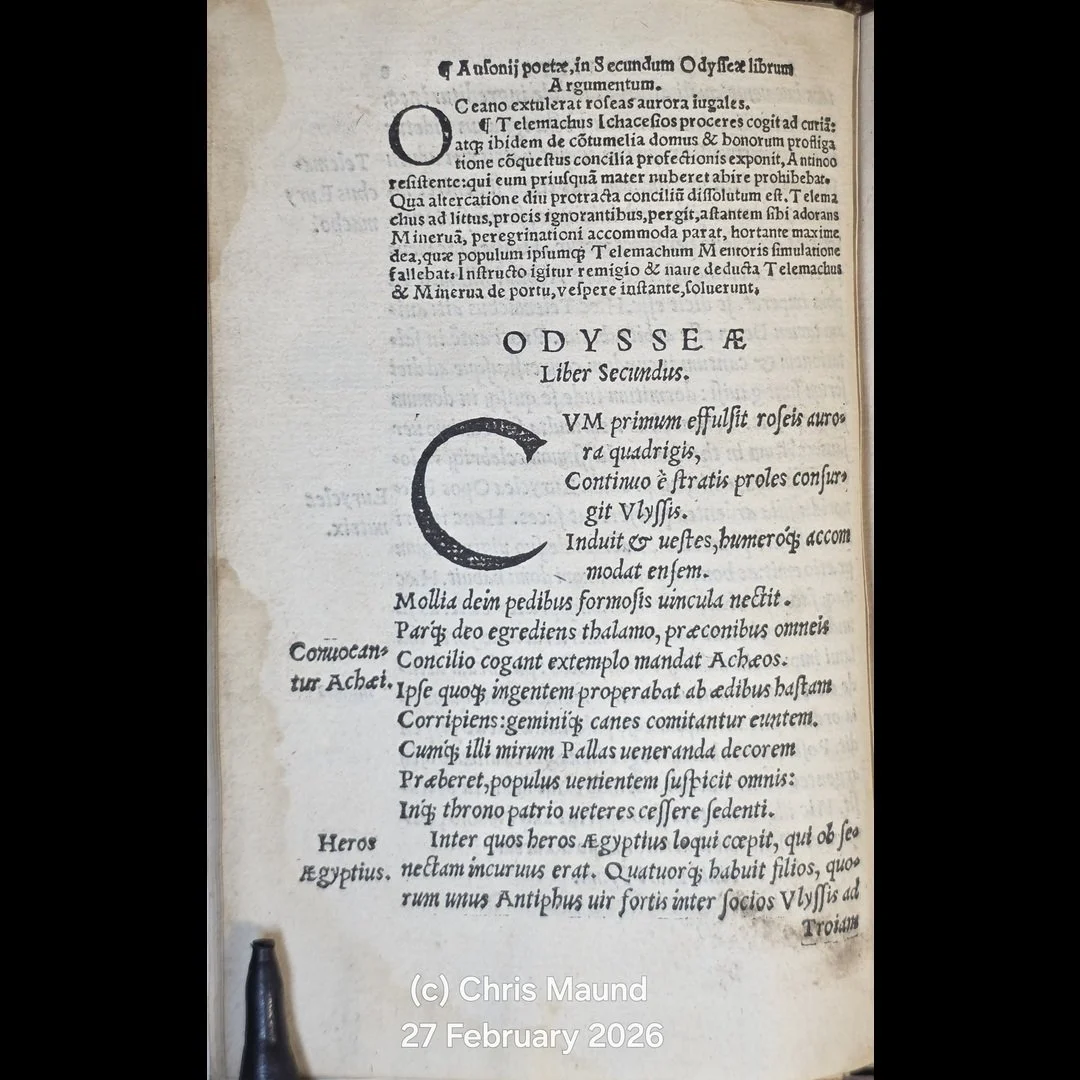 ¶ Auſonij poetæ, in Secundum Odyſſeæ librum
Argumentum.
OCeano extulerat roſeas aurora iugales.
¶ Telemachus Ichaceſios proceres cogit ad curiã:
atq; ibidem de cõtumelia domus & bonorum profliga
tione cõqueſtus concilia profectionis exponit, Antinoo
reſiſtente: qui eum priuſquã mater nuberet abire prohibebat.
Qua altercatione diu protracta conciliũ diſſolutum eſt. Telema
chus ad littus, procis ignorantibus, pergit, aſtantem ſibi adorans
Mineruã, peregrinationi accommoda parat, hortante maxime
dea, quæ populum ipſumq; Telemachum Mentoris ſimulatione
fallebat: Inſtructo igitur remigio & naue deducta Telemachus
& Minerua de portu, veſpere inſtante, ſoluerunt.
ODYSSEÆ
Liber Secundus.
CVM primum effulſit roſeis auro-
ra quadrigis,
Continuo è ſtratis proles conſur-
git Vlyſſis.
Induit & ueſtes, humeróq; accom
modat enſem.
Mollia dein pedibus formoſis uincula nectit.
Parq́; deo egrediens thalamo, præconibus omneis
Conuocan-
Concilio cogant extemplo mandat Achæos.
tur Achæi.
Ipſe quoq; ingentem properabat ab ædibus haſtam
Corripiens: geminiq́; canes comitantur euntem.
Cumq́; illi mirum Pallas ueneranda decorem
Præberet, populus uenientem ſuſpicit omnis:
Inq́; throno patrio ueteres ceſſere ſedenti.
Heros
Inter quos heros Ægyptius loqui cœpit, qui ob ſe-
Ægyptius.
nectam incuruus erat. Quatuorq́; habuit filios, quo-
rum unus Antiphus uir fortis inter ſocios Vlyſſis ad
Troiam
(c) Chris Maund
27 February 2026